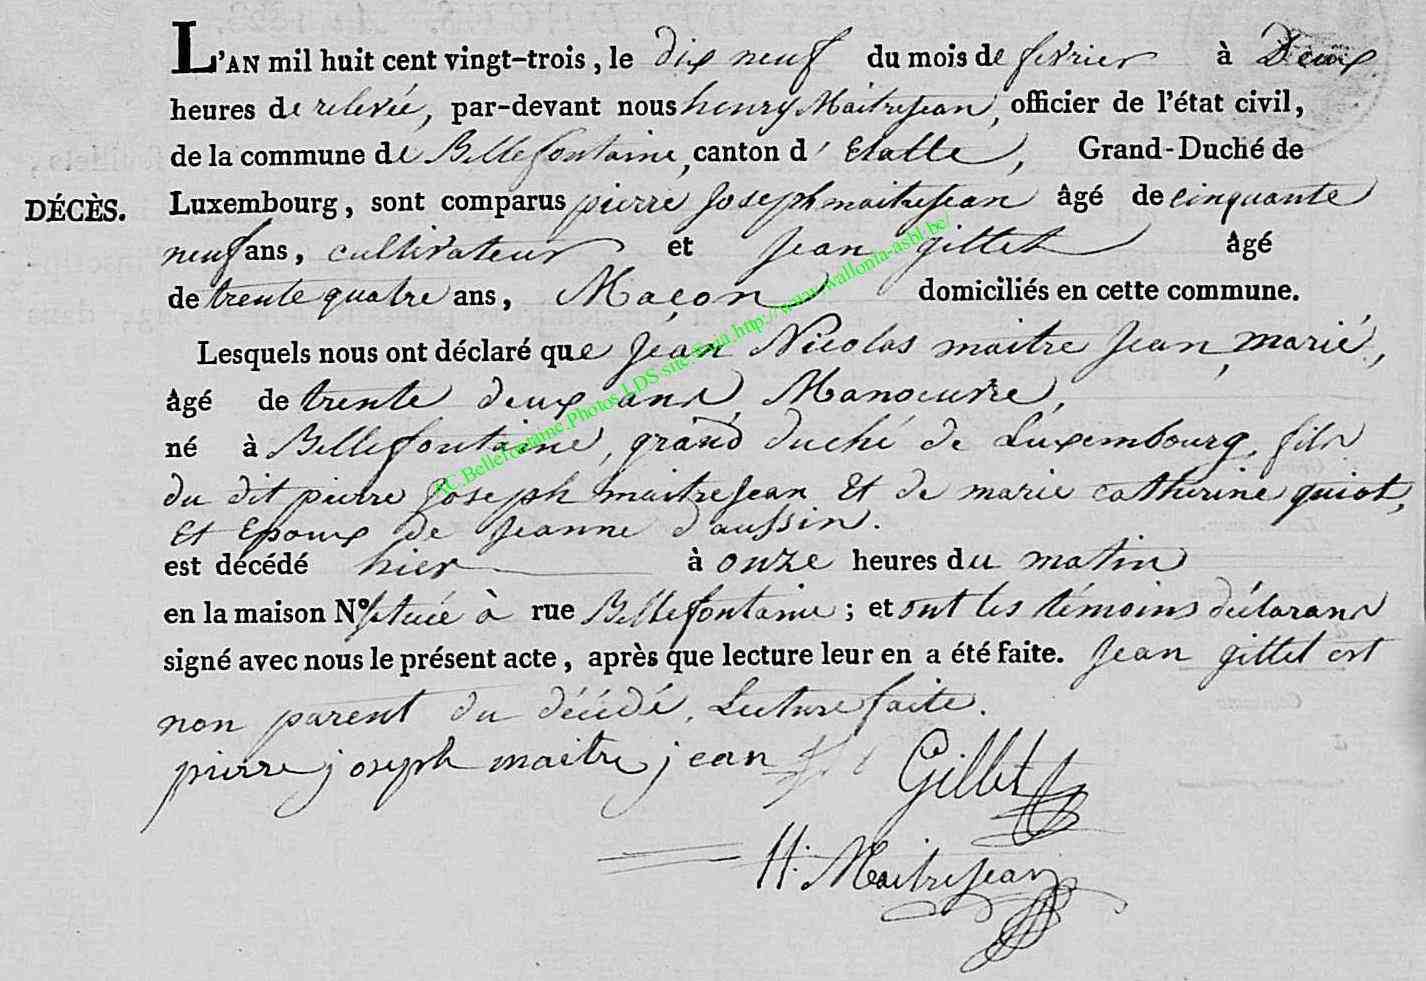 L'AN mil huit cent vingt-trois, le dix neuf du mois de fevrier à Deux
heures de relevée, par-devant nous henry Maitrejean, officier de l'état civil,
de la commune de Bellefontaine, canton d' Etalle, Grand-Duché de
DÉCÈS. Luxembourg, sont comparus pierre Joseph maitrejean âgé de cinquante
neuf ans, cultivateur et Jean gillet âgé
de trente quatre ans, Maçon domiciliés en cette commune.
Lesquels nous ont déclaré que Jean Nicolas maitre Jean, marié,
âgé de trente deux ans, Manoeuvre,
né à Bellefontaine, grand duché de Luxembourg, fils
du dit pierre Joseph maitrejean Et de marie catherine quiot,
Et Epoux de Jeanne d'aussin.
est décédé hier à onze heures du matin
en la maison N° située à rue Bellefontaine; et ont les témoins déclarans
signé avec nous le présent acte, après que lecture leur en a été faite. Jean gillet est
non parent du décédé. Lecture faite.
pierre joseph maitre jean Gillet
H. Maitrejean
AC_Bellefontaine_Photos_LDS